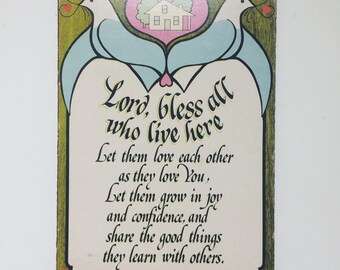 Lord, bless all
who live here
Let them love each other
as they love You,
Let them grow in joy
and confidence, and
share the good things
they learn with others.